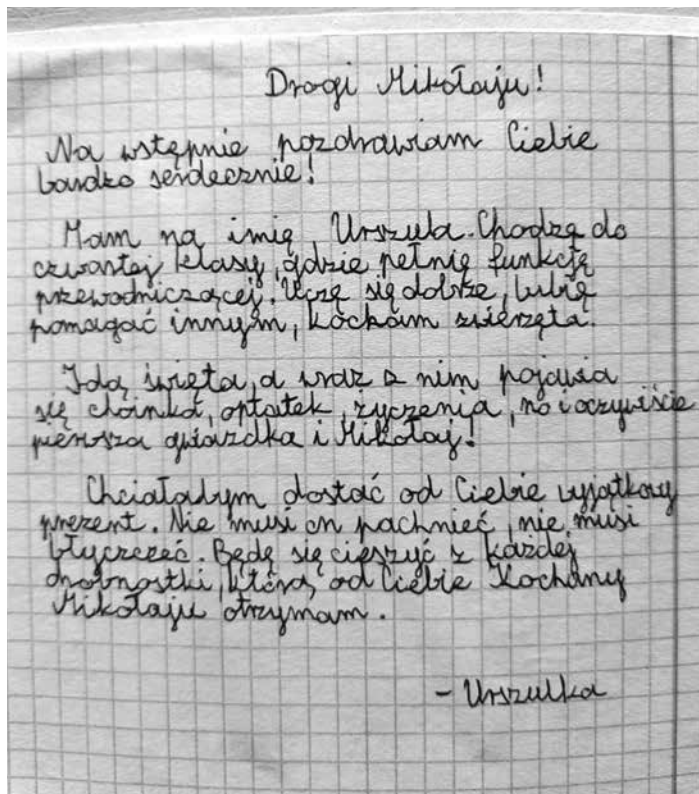 Drogi Mikołaju!
Na wstępnie pozdrawiam Ciebie
bardzo serdecznie!
Mam na imię Urszula. Chodzę do
czwartej klasy, gdzie pełnię funkcję
przewodniczącej. Uczę się dobrze, lubię
pomagać innym, kocham zwierzęta.
Idą święta, a wraz z nim pojawia
się choinka, opłatek, życzenia, no i oczywiście
pierwsza gwiazdka i Mikołaj!
Chciałabym dostać od Ciebie wyjątkowy
prezent. Nie musi on pachnieć, nie musi
błyczczeć. Będę się cieszyć z każdej
drobnostki, którą od Ciebie Kochany
Mikołaju otrzymam.
- Urszulka